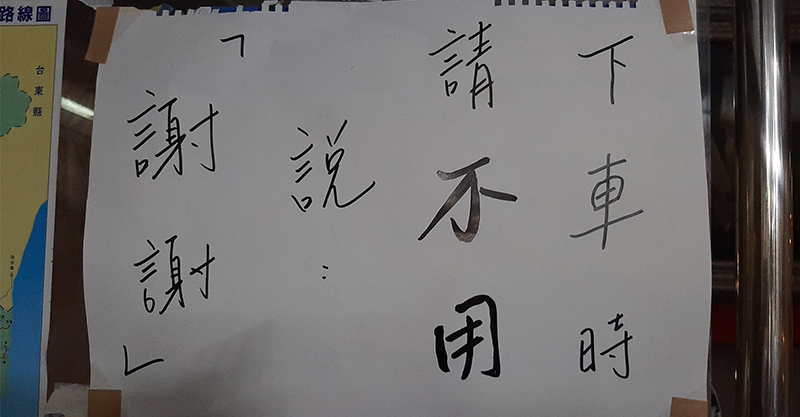 下車時
請不用
說：
「謝謝」
路線圖
台東縣